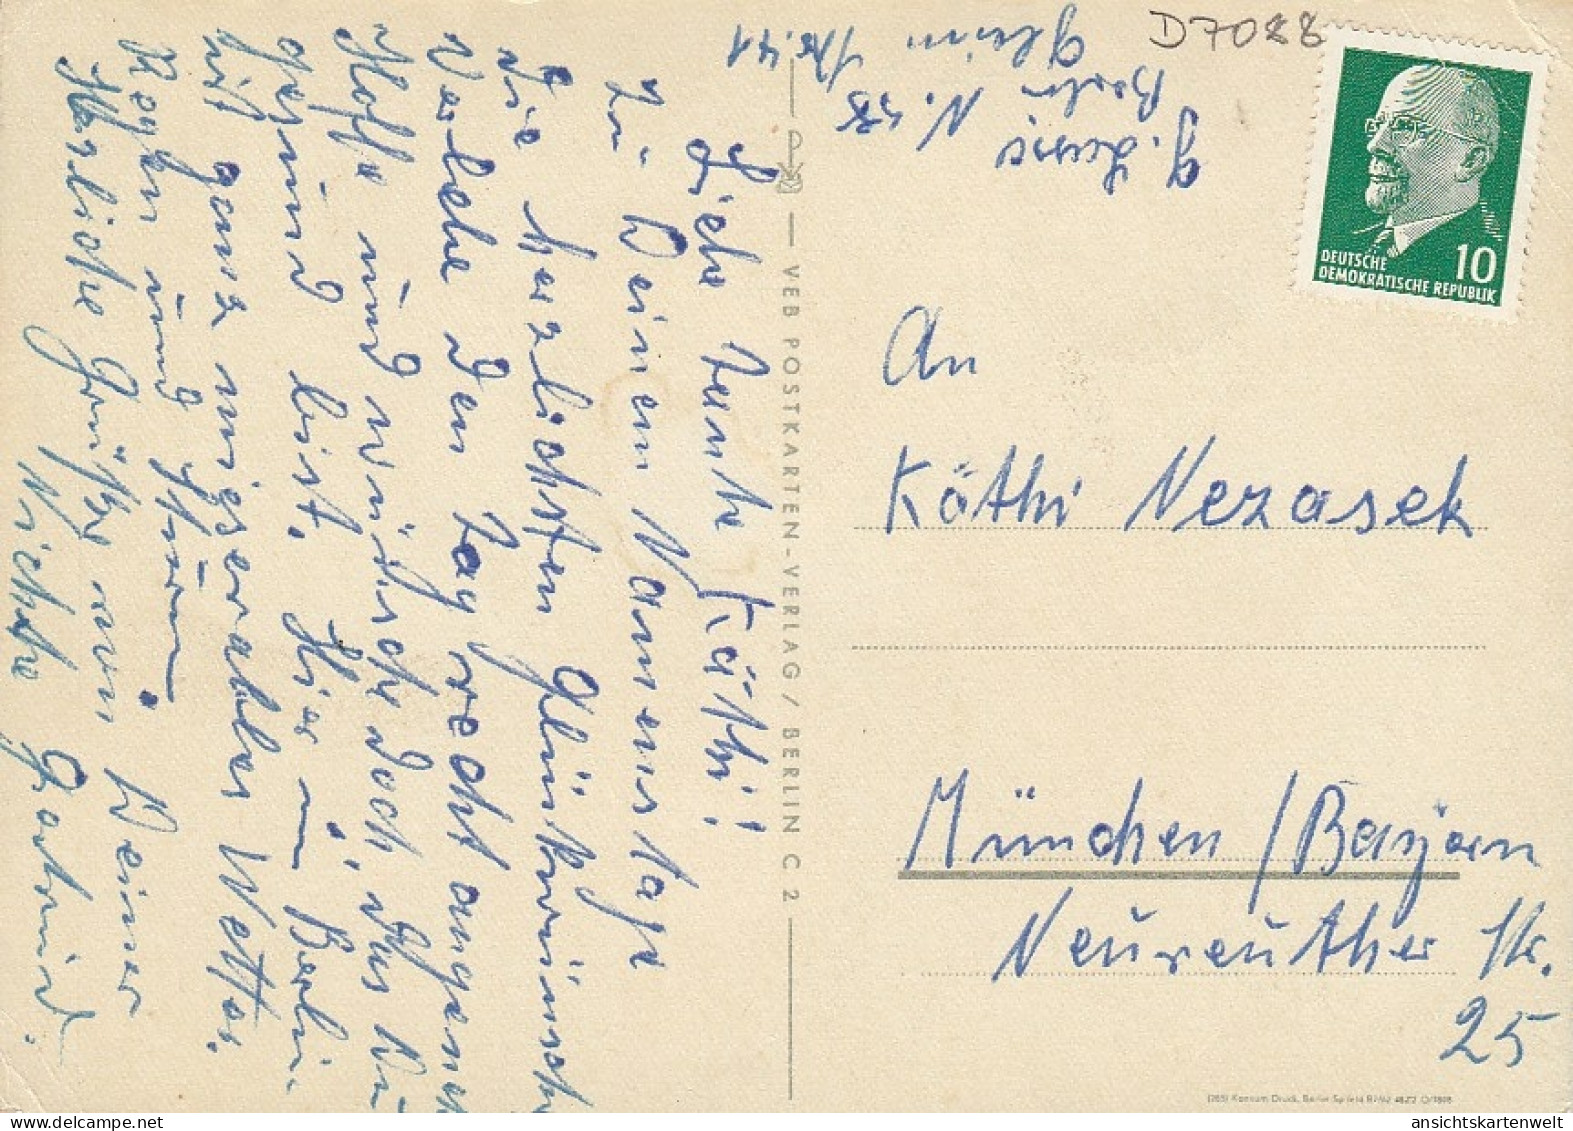 Liebe Tante Käthi!
Zu Deinem Namenstage
die herzlichsten Glückwünsche
Verlebe den Tag recht angeneh
Hoffe und wünsche doch, das Du
gesund bist. Hier in Berlin
ist ganz miserables Wetter.
Regen und Sturm.
Herzliche Grüße von Deiner
Nichte Gertrud.
VEB POSTKARTEN-VERLAG / BERLIN C 2
G.
Berlin N. 58
Gleim Str. 41
D7088
DEUTSCHE
DEMOKRATISCHE REPUBLIK
10
An
Käthi Nezasek
München / Bayern
Neureuther Str.
25
ansichtskartenwelt